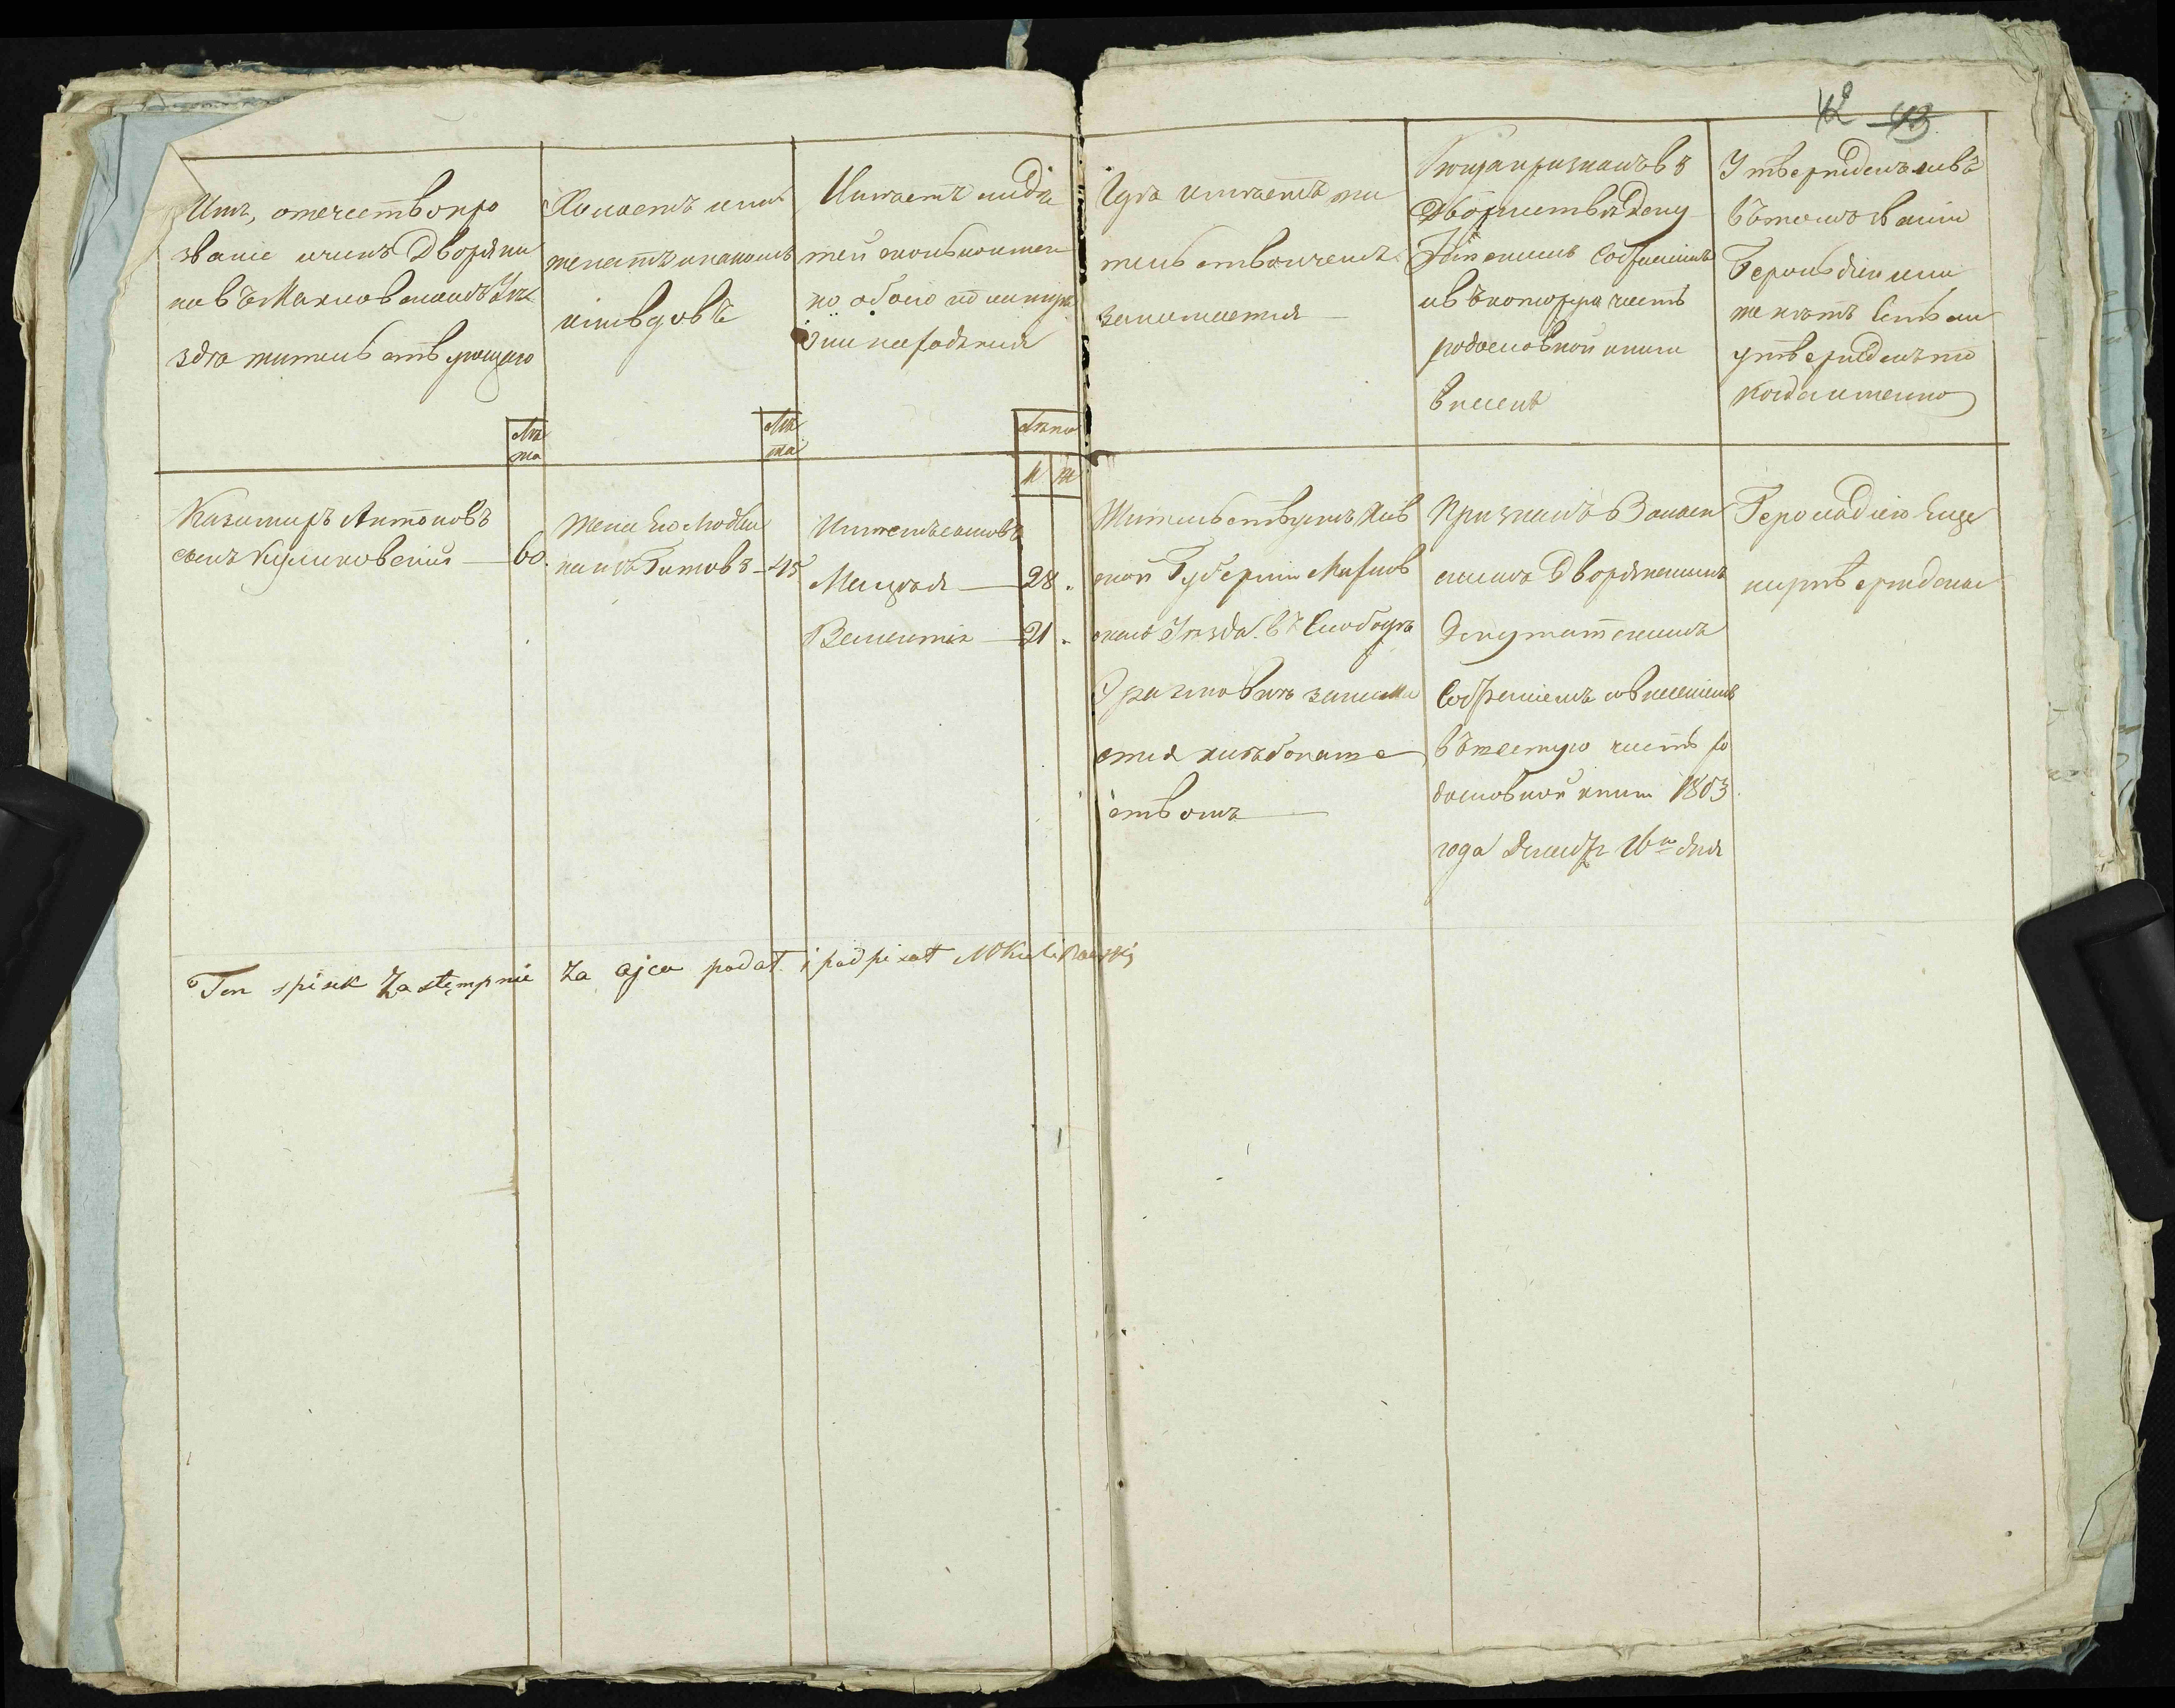 42 43
Имя, отечество про
звание и чинъ Дворяни
на въ Махновскомъ Уѣ
здѣ жительствующаго
Лѣ
та
Холостъ или
женатъ и на комъ
или вдовъ
Лѣ
та
Имѣетъ ли дѣ
тей сколько имен
но обоего пола
Лѣта
М Ж
Гдѣ имѣетъ жи
тельство и чемъ
занимается
Когда признанъ въ
Дворянствѣ Депу
татскимъ Собраніемъ
и въ которую часть
родословной книги
внесенъ
Утвержденъ ли въ
въ томъ званіи
Герольдіею или
же нѣтъ Естьли
утвержденъ то
когда именно
Казимиръ Антоновъ
сынъ Куликовскій 60.
Жена Его Людви
ка изъ 45
Имѣетъ сыновъ
Мацѣя 28.
Валентія 21.
Жительствуетъ Кіев
ской Губерніи Махнов
скаго Уѣзда въ Слободѣ
занима
ется хлѣбопаше
ствомъ
Признанъ Волын
скимъ Дворянскимъ
Депутатскимъ
Собраніемъ со внесеніемъ
въ шестую часть ро
дословной книги 1803
года Декабря 16го дня
Герольдіею Еще
неутвержденъ
Ten spisek Zastempnie za ojca podał i podpisał M Kulikowski